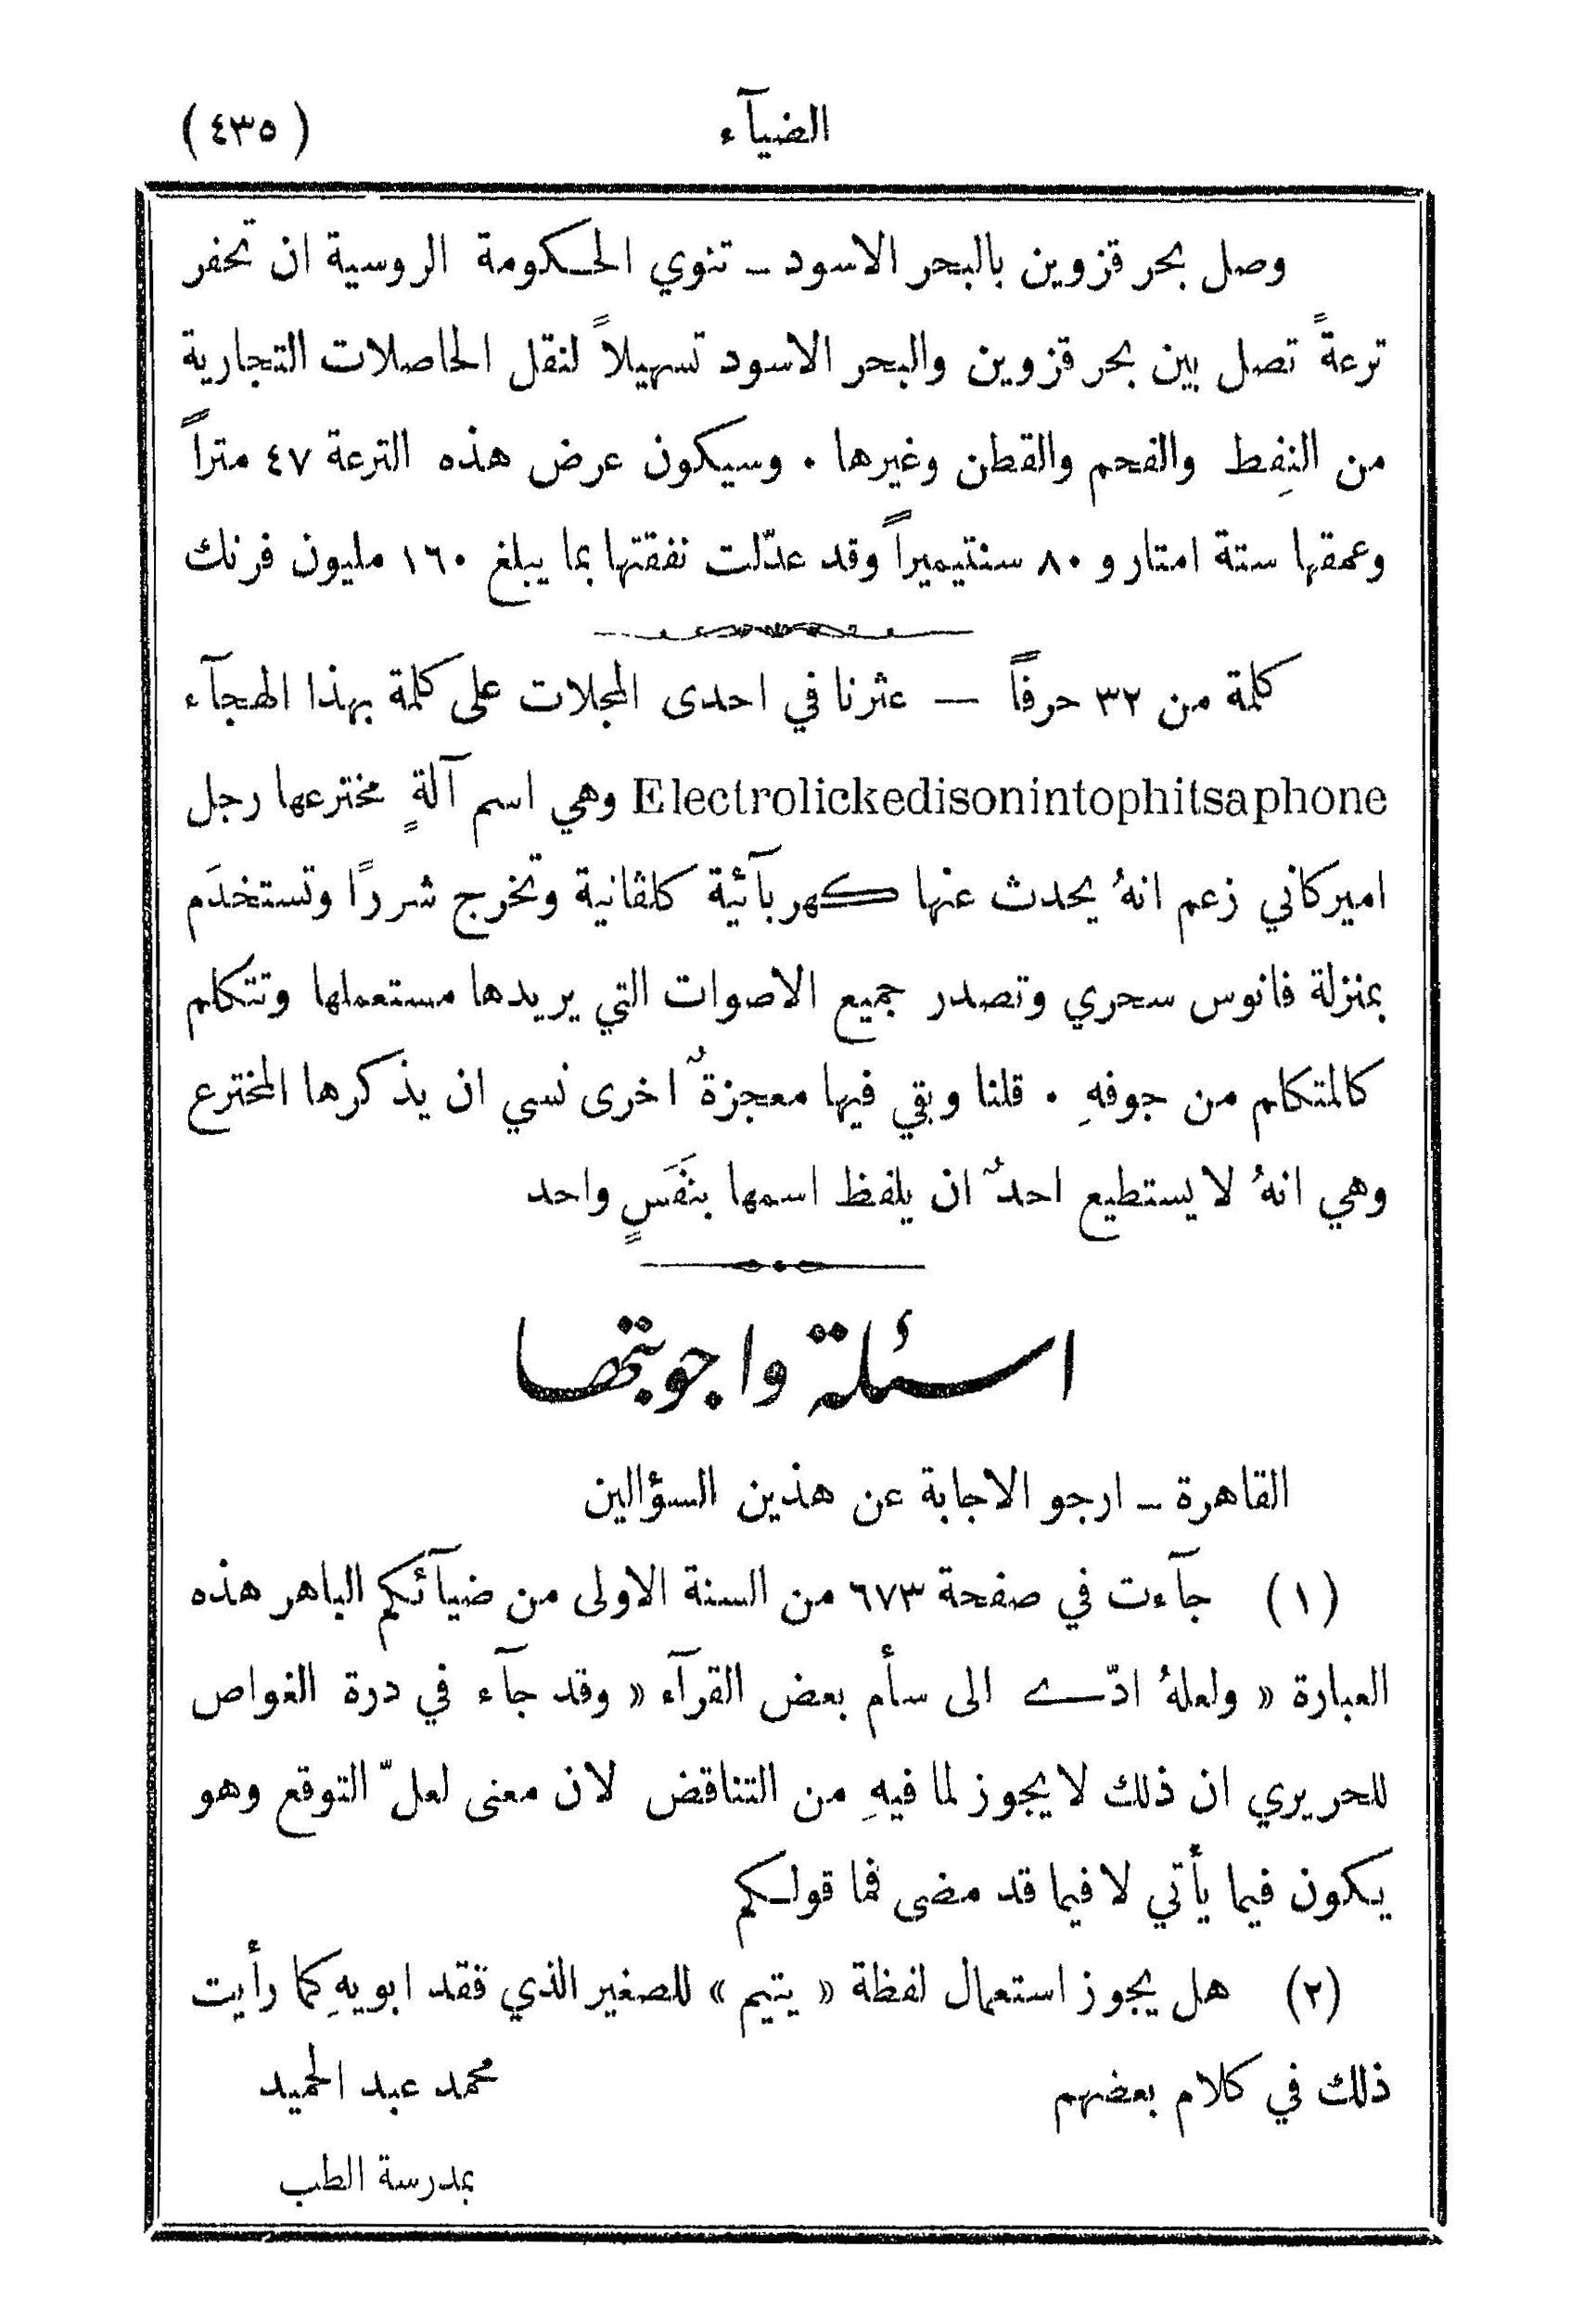 الضيآء
(٤٣٥)
وصل بحر قزوين بالبحر الاسود – تنوي الحكومة الروسية ان تحفر
ترعةً تصل بين بحر قزوين والبحر الاسود تسهيلاً لنقل الحاصلات التجارية
من النِفط والفحم والقطن وغيرها ٠ وسيكون عرض هذه الترعة ٤٧ متراً
وعمقها ستة امتار و ٨٠ سنتيميراً وقد عدّلت نفقتها بما يبلغ ١٦٠ مليون فرنك
كلمة من ٣٢ حرفاً — عثرنا في احدى المجلات على كلمة بهذا الهجآء
Electrolickedisonintophitsaphone وهي اسم آلةٍ مخترعها رجل
اميركاني زعم انهُ يحدث عنها كهربآئية كلڤانية وتخرج شررًا وتستخدَم
بمنزلة فانوس سحري وتصدر جميع الاصوات التي يريدها مستعملها وتتكلم
كالمتكلم من جوفهِ ٠ قلنا وبقي فيها معجزةٌ اخرى نسي ان يذكرها المخترع
وهي انهُ لا يستطيع احدٌ ان يلفظ اسمها بنَفَسٍ واحد
اسئلة واجوبتها
القاهرة – ارجو الاجابة عن هذين السؤالين
(١) جآءت في صفحة ٦٧٣ من السنة الاولى من ضيآئكم الباهر هذه
العبارة « ولعلهُ ادّے الى سأم بعض القرآء « وقد جآء في درة الغواص
للحريري ان ذلك لا يجوز لما فيهِ من التناقض لان معنى لعلّ التوقع وهو
يكون فيما يأتي لا فيما قد مضى فما قولكم
(٢) هل يجوز استعمال لفظة « يتيم » للصغير الذي فقد ابويهِ كما رأيت
ذلك في كلام بعضهم محمد عبد الحميد
بمدرسة الطب